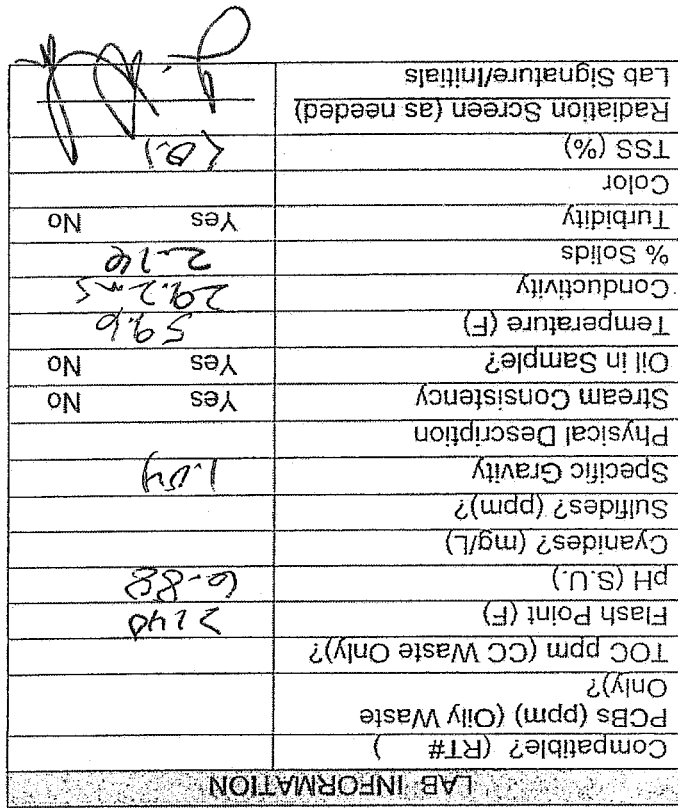 LAB INFORMATION
Compatible? (RT# )
PCBs (ppm) (Oily Waste
Only)?
TOC ppm (CC Waste Only)?
Flash Point (F) >140
pH (S.U.) 6.88
Cyanides? (mg/L)
Sulfides? (ppm)?
Specific Gravity 1.04
Physical Description
Stream Consistency Yes No
Oil in Sample? Yes No
Temperature (F) 59.6
Conductivity 29.2 ms
% Solids 2.16
Turbidity Yes No
Color
TSS (%) <0.1
Radiation Screen (as needed)
Lab Signature/Initials